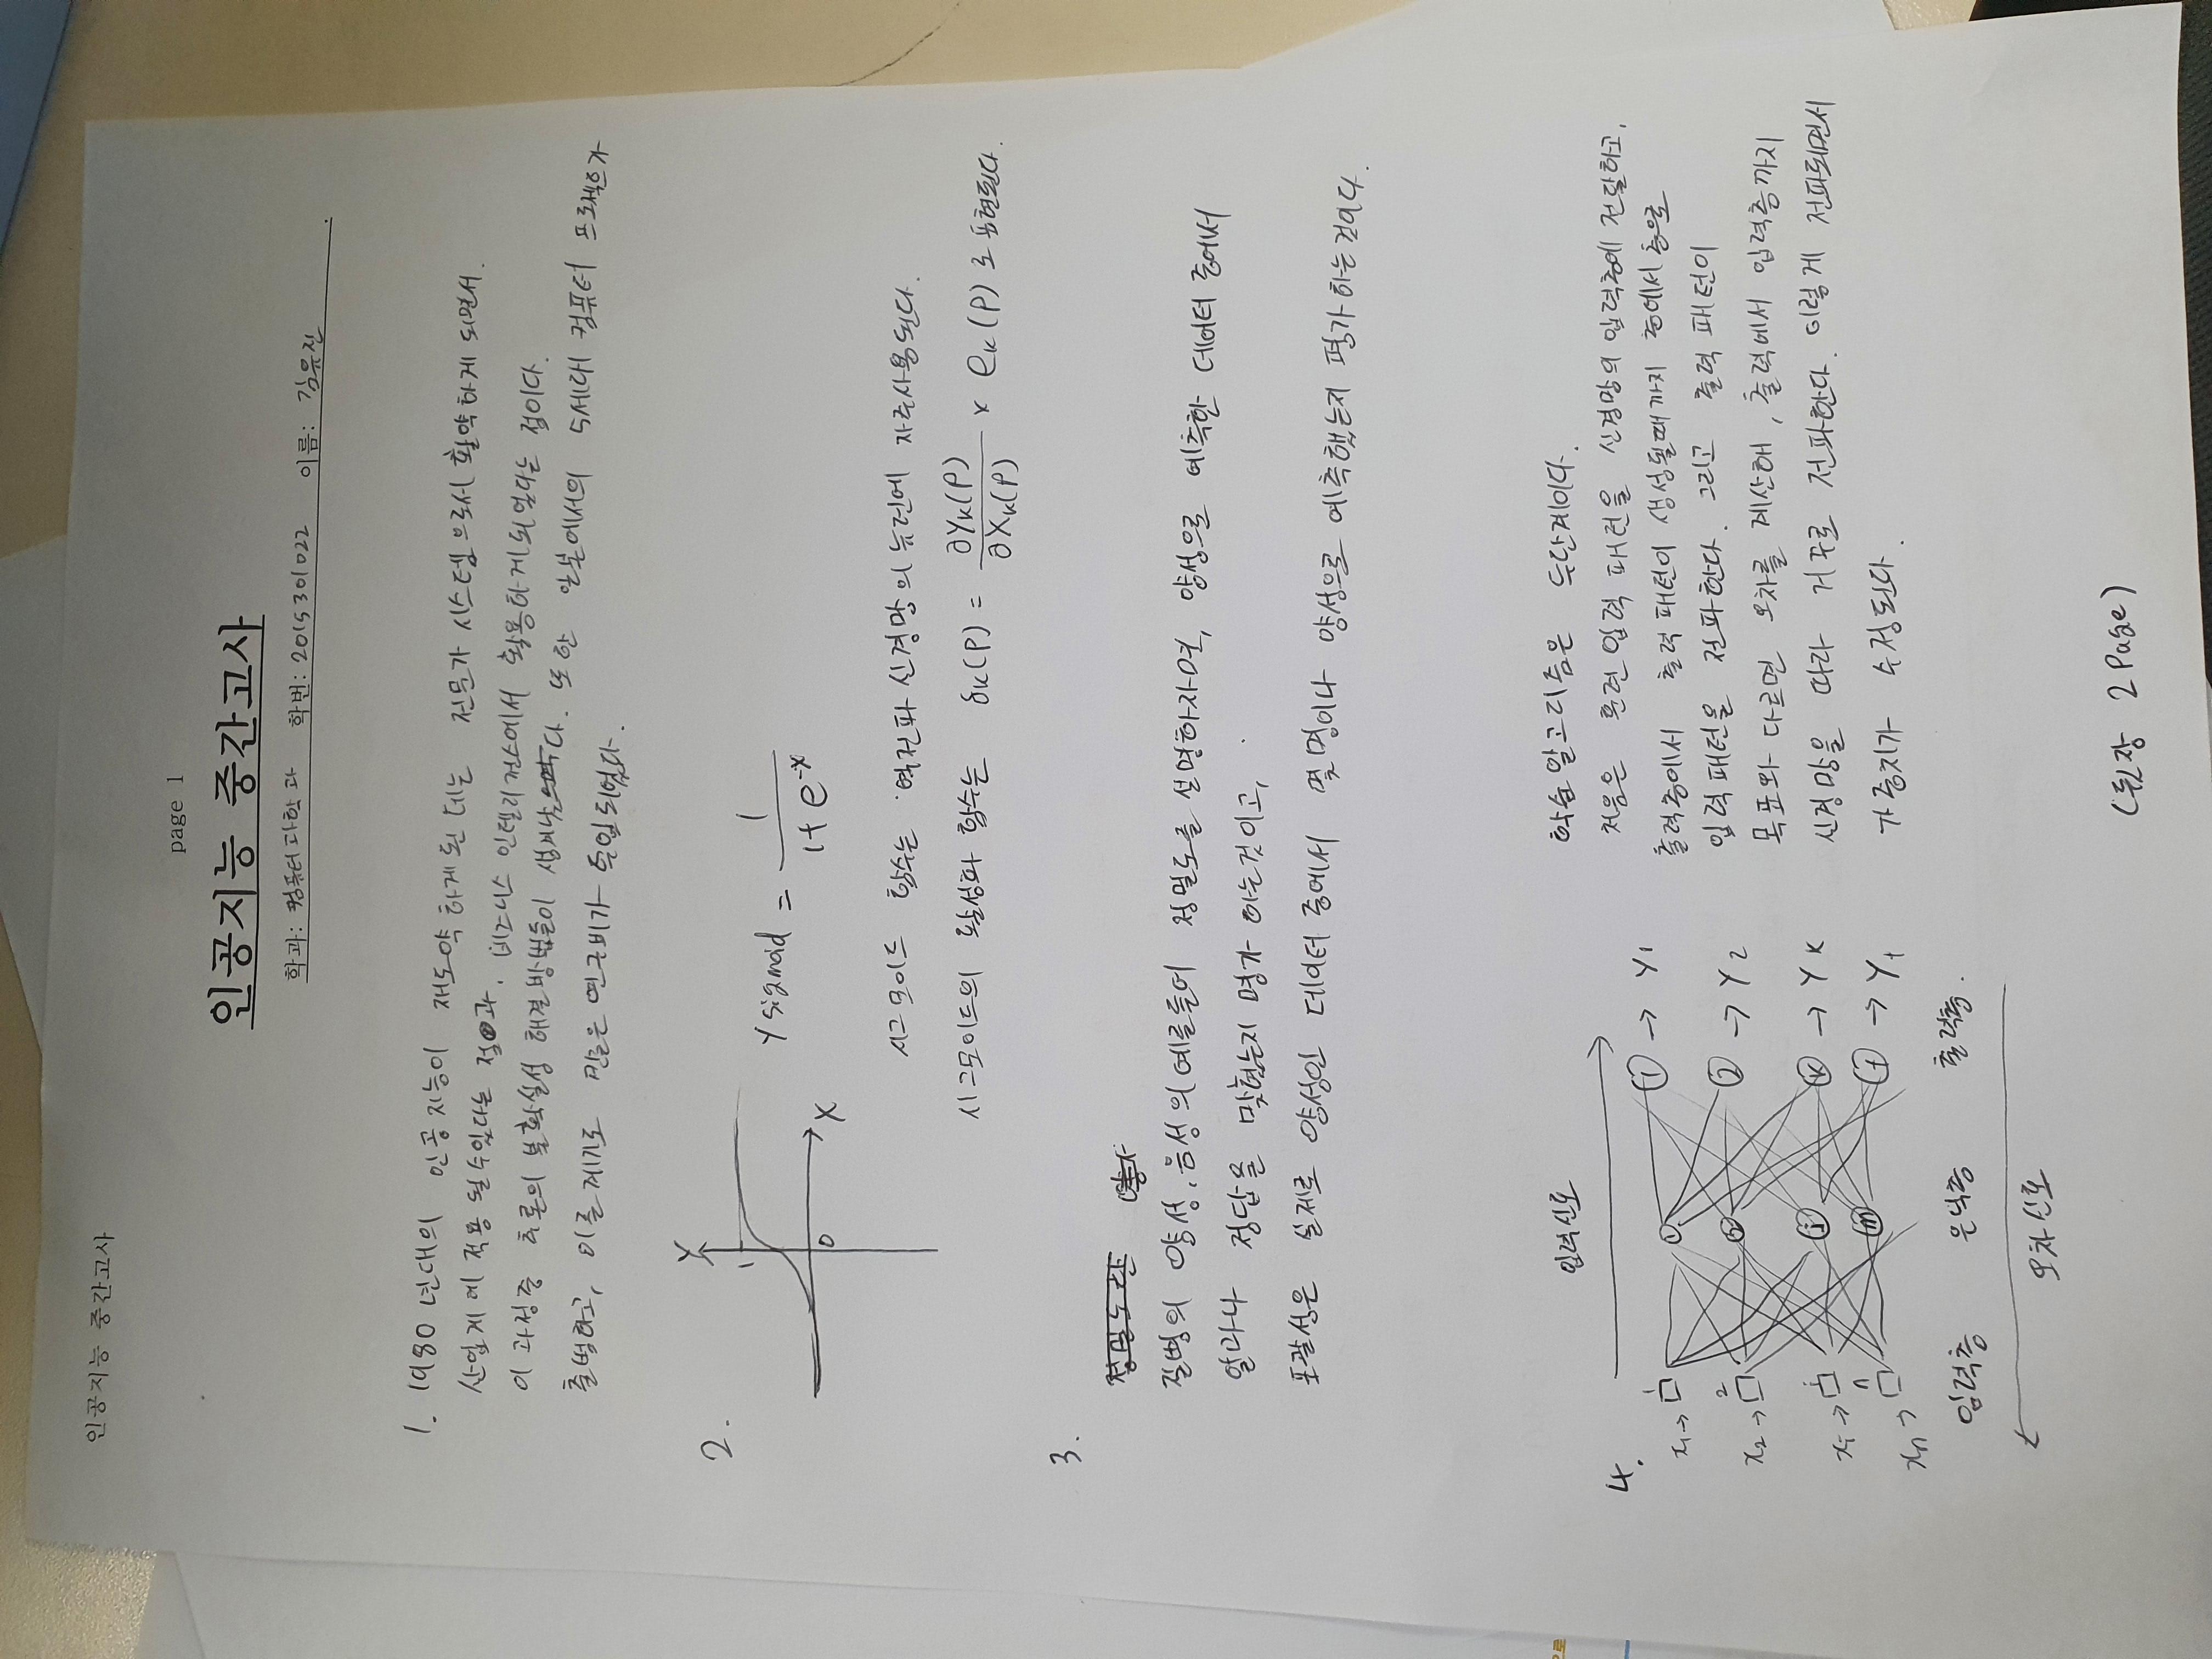 인공지능 중간고사
page 1
인공지능 중간고사
학과: 컴퓨터과학과 학번: 2015301022 이름: 김유진
1. 1980년대의 인공지능이 재도약하게 된 데는 전문가 시스템으로서 활약하게 되면서
산업계에 적용 될 수 있다는 점과, 비즈니스 인텔리전스에서 활용하게 되었다는 점이다.
이 과정 중 추론의 불확실성 해결방법들이 생겨났다. 또한 일본에서의 5세대 컴퓨터 프로젝트가
출범하고, 이를 계기로 많은 연구비가 투입되었다.
2.
Y
1
0
X
Y sigmoid = 1 / (1 + e^-x)
시그모이드 함수는 역전파 신경망의 뉴런에 자주사용된다.
시그모이드의 활성화 함수는 δk(P) = ∂Yk(P) / ∂Xk(P) × ek(P) 로 표현된다.
3.
정밀도란
질병의 양성, 음성의 예를들어 정밀도를 설명하자면, 양성으로 예측한 데이터 중에서
얼마나 정답을 맞혔는지 평가 하는것이고,
포괄성은 실제로 양성인 데이터 중에서 몇 명이나 양성으로 예측했는지 평가하는것이다.
4.
입력신호
x1 → 1 1 1 → Y1
x2 → 2 2 2 → Y2
xi → i j k → Yk
xn → n m
입력층 은닉층 출력층.
오차신호
학습 알고리즘은 두단계이다.
처음은 훈련 입력 패턴을 신경망의 입력층에 전달하고,
출력층에서 출력 패턴이 생성될때까지 층에서 층으로
입력패턴을 전파한다. 그리고 출력 패턴이
목표와 다르면 오차를 계산해, 출력에서 입력층까지
신경망을 따라 거꾸로 전파한다. 이렇게 전파되면서
가중치가 수정된다.
(뒷장 2 Page)